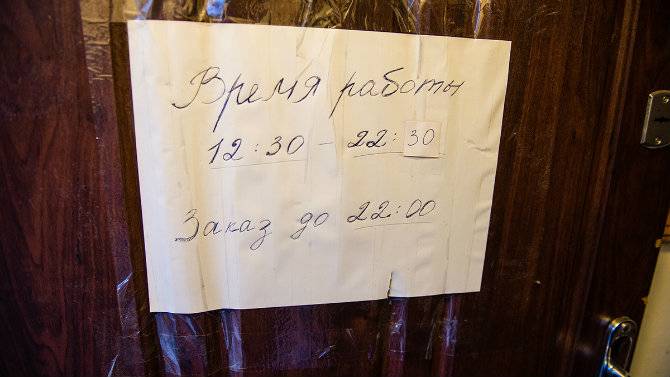 Время работы
12:30 - 22:30
Заказ до 22:00